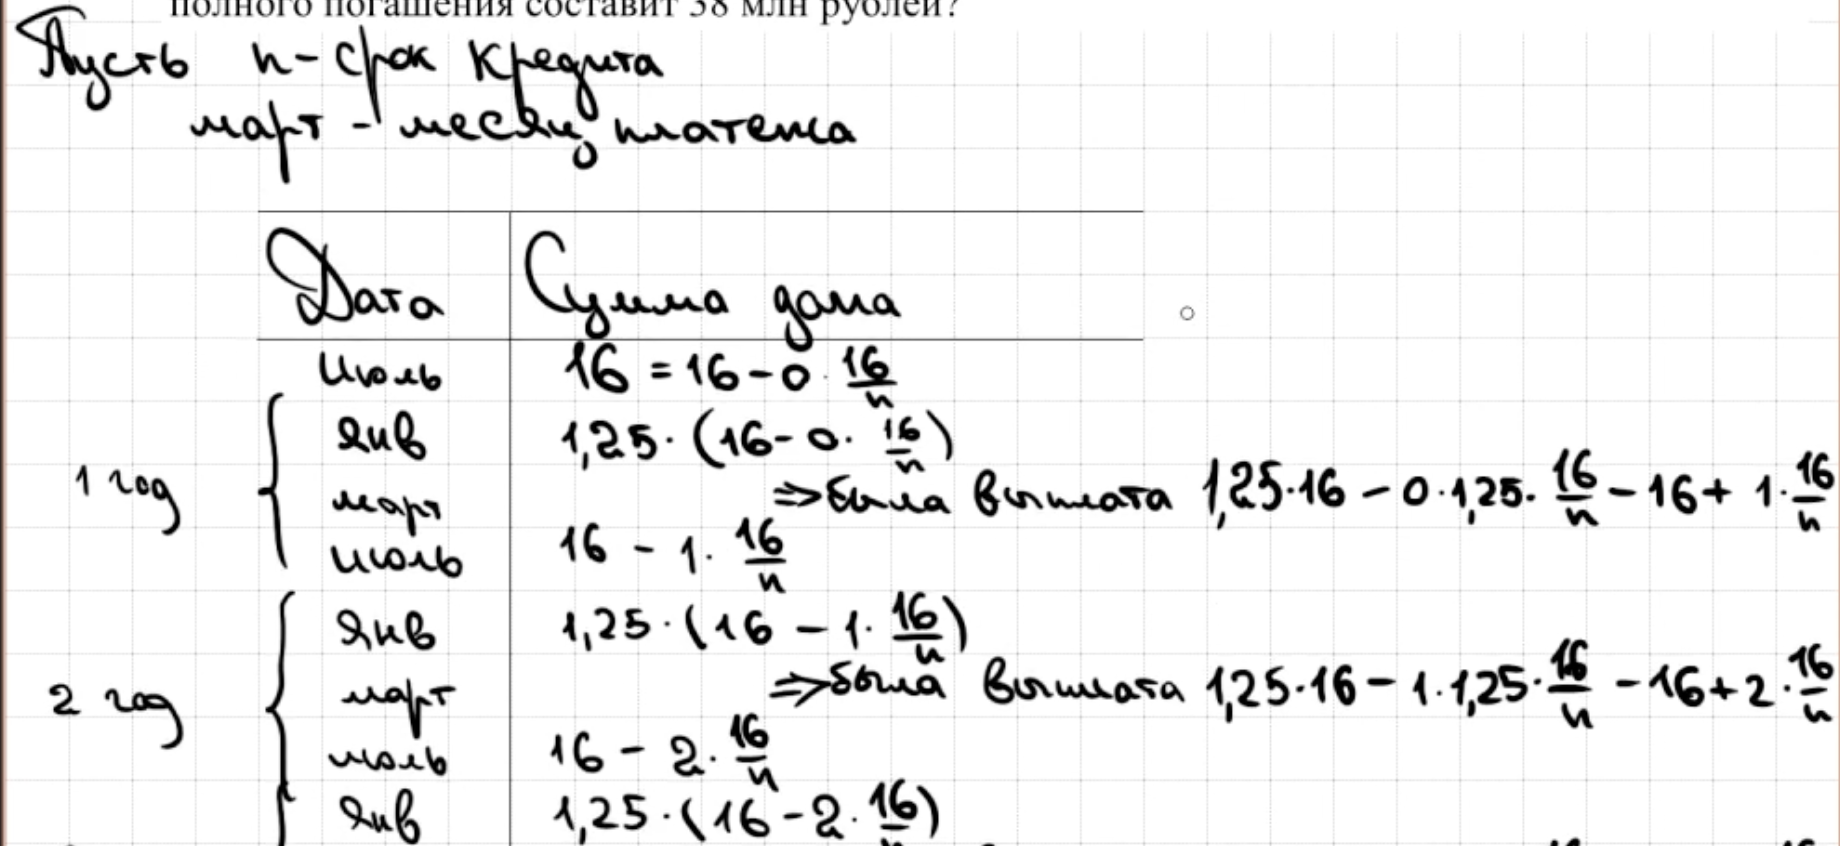 полного погашения составит 38 млн рублей?
Пусть n - срок кредита
март - месяц платежа
Дата Сумма долга
июль 16 = 16 - 0 · 16/n
1 год
янв 1,25 · (16 - 0 · 16/n)
март ⇒ была выплата 1,25·16 - 0·1,25· 16/n - 16 + 1· 16/n
июль 16 - 1 · 16/n
2 год
янв 1,25 · (16 - 1 · 16/n)
март ⇒ была выплата 1,25·16 - 1·1,25· 16/n - 16 + 2 · 16/n
июль 16 - 2 · 16/n
янв 1,25 · (16 - 2 · 16/n)